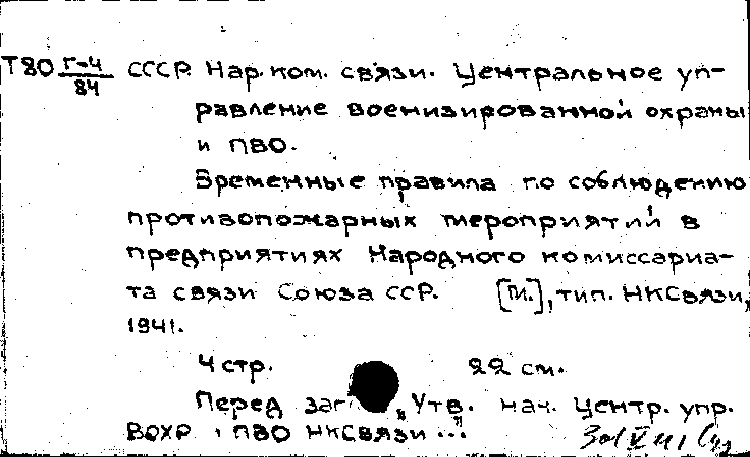 Т80 Г-4/84 СССР. Нар. ком. связи. Центральное уп-
равление военизированной охраны
и ПВО.
Временные правила по соблюдению
противопожарных мероприятий в
предприятиях Народного комиссариа-
та связи Союза ССР. [М.], тип. НКСвязи,
1941.
4 стр. 22 см.
Перед заг. „Утв. нач. Центр. упр.
ВОХР и ПВО НКСвязи..."